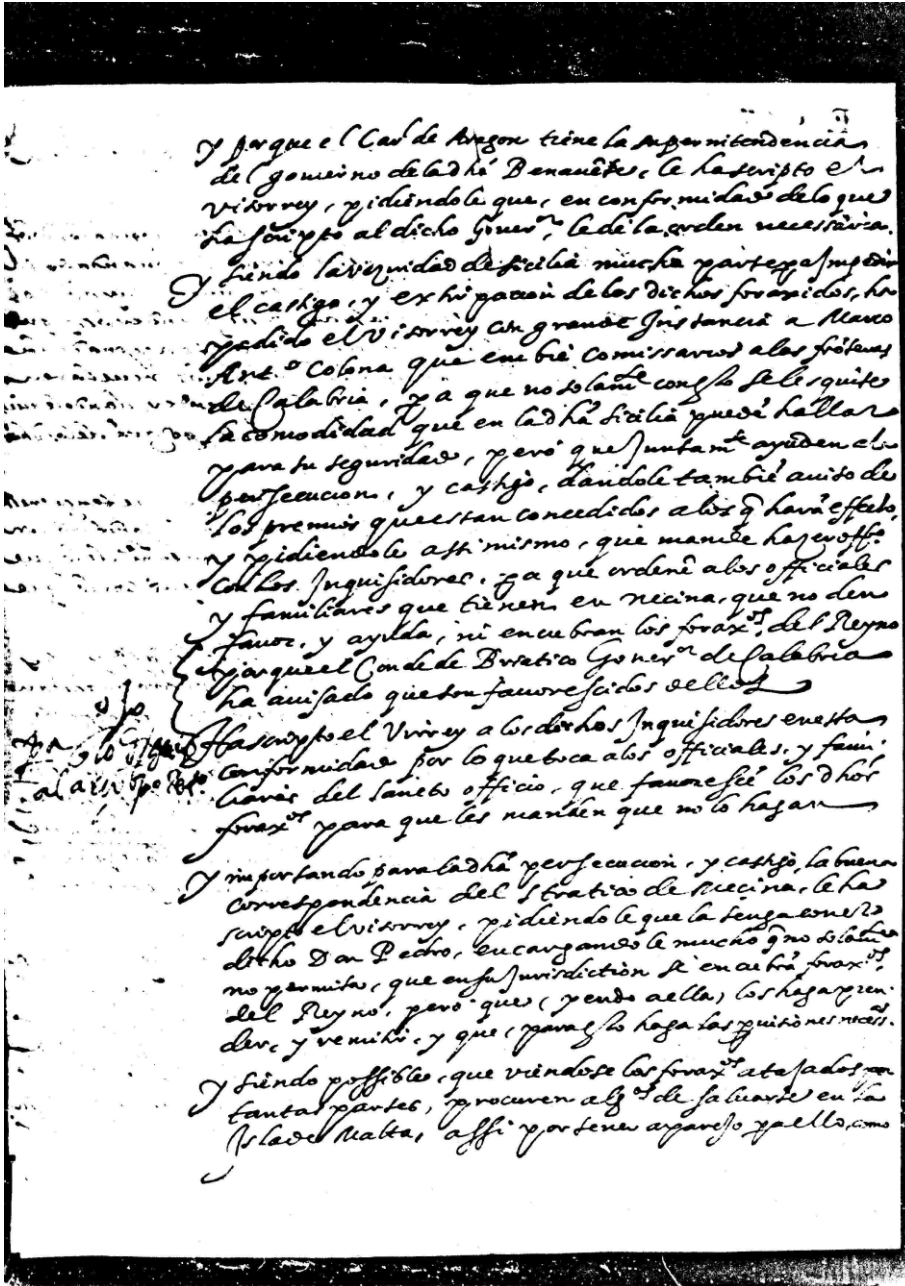 y porque el Car.l de Aragon tiene la supernitendencia
del gouierno de la dhã Benauẽte, le ha scripto el
Visorrey, pidiendole que, en conformidad de lo que
ha scripto al dicho Gouer.or, le dè la orden necessaria.
Y siendo la vezindad de Sicilia mucha parte pa Impedir
el castigo, y extirpacion de los dichos foraxidos, ha
pedido el Visorrey con grande Instancia a Marco
Ant.o Colona que embie comissarios a las frõteras
de Calabria, pa que no solam.te con esto se les quite
la comodidad que en la dhã Sicilia puedẽ hallar
para su seguridad, pero que Juntam.te ayuden a la
persecucion, y castigo, dandole tambiẽ auiso de
los premios que estan concedidos a los q̃ harã effecto,
y pidiendole assi mismo, que mande hazer off.o
con los Inquisidores, pa que ordenẽ a los officiales
y familiares que tienen en Mecina, que no den
fauor, y ayuda, ni encubran los forax.os del Reyno
porque el Conde de Briatico Gouer.or de Calabria
ha auisado que son fauorescidos dellos
ojo
Ha scripto el Virrey a los dichos Inquisidores en esta
conformidad por lo que toca a los officiales, y fami-
liares del Sancto officio, que fauorescẽ los dhõs
forax.os para que les manden que no lo hagan
Y importando para la dhã persecucion, y castigo, la buena
correspondencia del Stratico de Mecina, le ha
scripto el visorrey, pidiendole que la tenga con el
dicho Don Pedro, encargandole mucho q̃ no solam.te
no permita, que en su Jurisdiction se encubrã forax.os
del Reyno, pero que, yendo a ella, los haga pren-
der, y remitir, y que, para esto haga las puisiones necess.as
Y siendo possible, que viendose los forax.os atajados por
tantas partes, procuren alg.os de saluarse en la
Isla de Malta, assi por tener aparejo pa ello, como